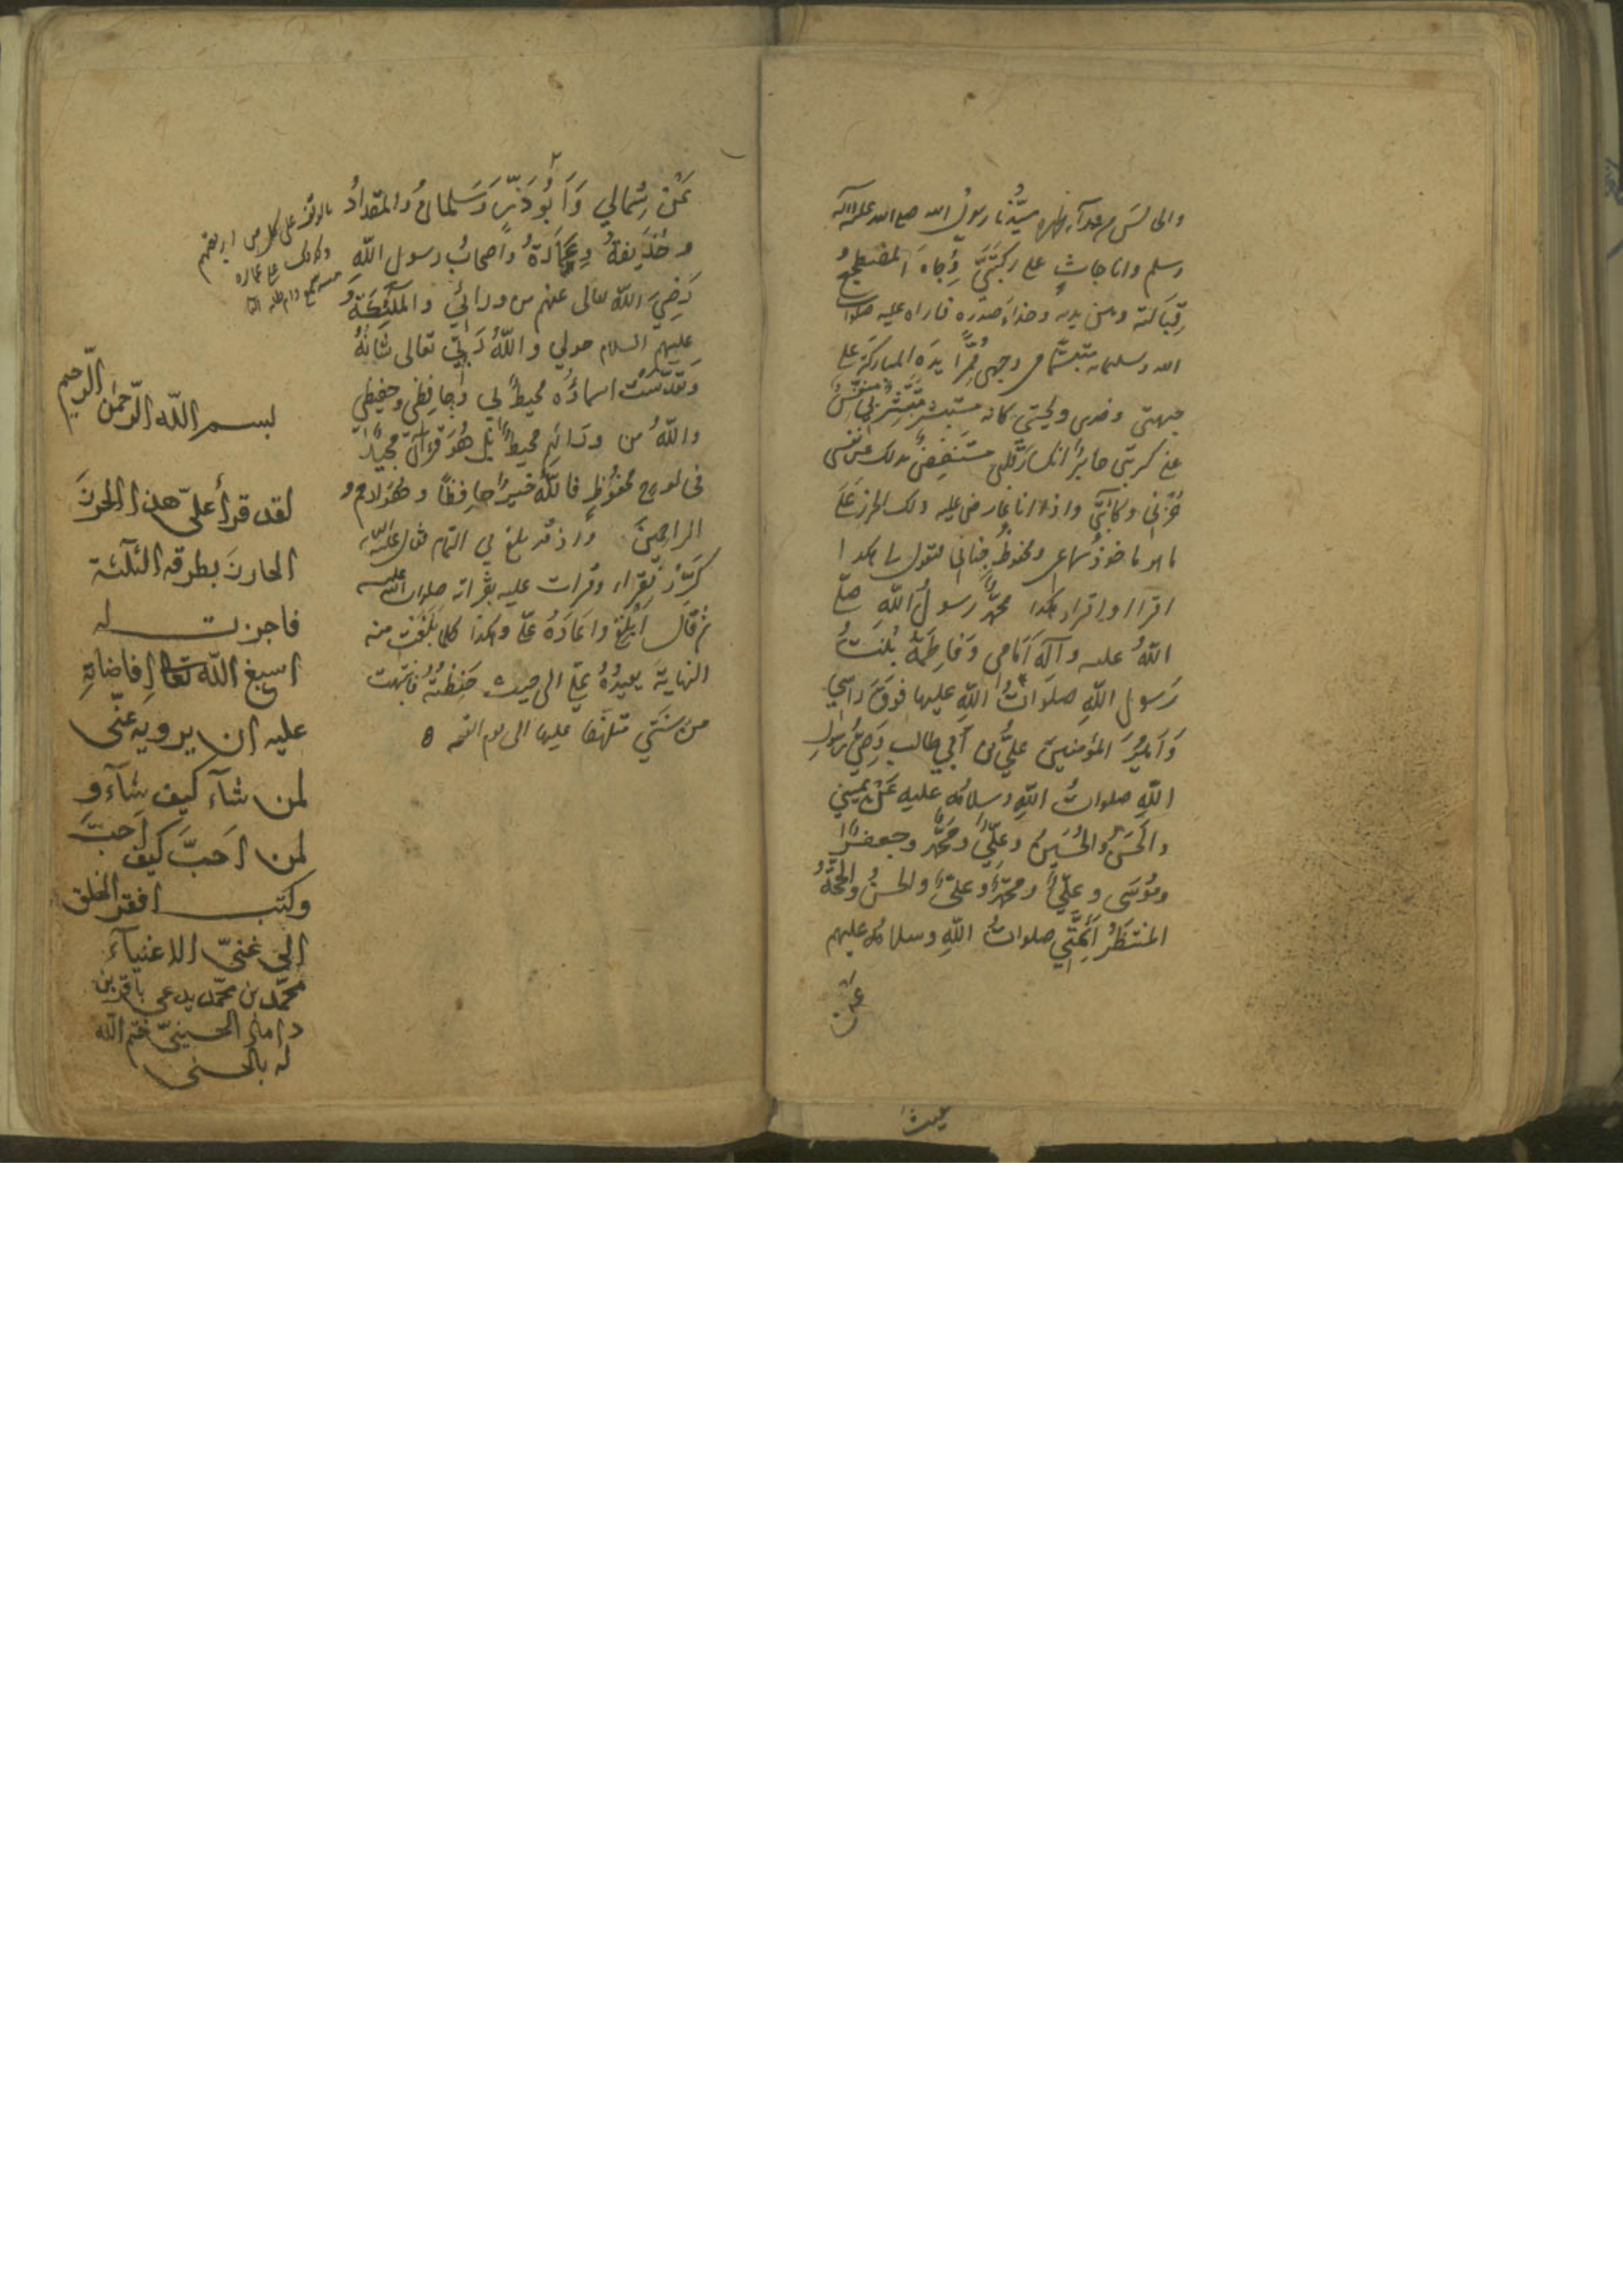 والجالس من وراء ظهره سيدنا رسول الله صلى الله عليه وآله
وسلم وانا جاثٍ على ركبتيّ وِجاهَ المضطجع
قبالته وبين يديه وحذاءَ صدره فاراه عليه صلوات
الله وتسليماته متبسّما في وجهي مُمِرًّا يدَه المباركة على
جبهتي وخدي ولحيتي كانه مستبشر متبشر بي منفّس
عن كربتي جابر انكسار قلبي مستنفض بذلك عن نفسي
حزني وكآبتي واذا انا عارض عليه ذلك الحرز على
ما هو ماخوذ سماعي ومحفوظ جناني فيقول لي هكذا
اقرأ واقرأ هكذا محمّدٌ رسولُ اللهِ صلّى
اللهُ عليه وآله أَمَامِي وَفَاطِمَةُ بِنْتُ
رَسولِ اللهِ صلَوَاتُ اللهِ عليها فَوْقَ رَأسِي
وَأَمِيرُ المؤمنين عليُّ بن أَبي طالب وَصِيُّ رَسُولِ
اللهِ صلواتُ اللهِ وسلامُه عليه عَنْ يَمِيني
والحَسَنُ والحُسَينُ وعليٌّ ومحمّدٌ وجعفرٌ
ومُوسَى وعليٌّ ومحمّدٌ وعليٌّ والحسنُ والحجّةُ
المنتظَرُ أَئِمَّتِي صلواتُ اللهِ وسلامُه عليهم
عَنْ
عَنْ شِمَالي وَأَبُو ذَرٍّ وَسَلمانُ والمقدادُ
وحُذَيفةُ وعَمَّارٌ واصحابُ رسولِ اللهِ
رَضِيَ اللهُ تعالى عنهم من ورائي والملٰئِكَةُ
عليهم السلام حولي واللهُ رَبّي تعالى شَانُهُ
وتَقَدَّسَتْ اسماؤُه محيطٌ بي وحافِظي وحفيظي
واللهُ من ورائهم محيطٌ بَل هُوَ قرآنٌ مجيدٌ
في لوحٍ محفوظٍ فاللهُ خيرٌ حافِظًا وهُوَ ارحم
الراحمينَ واذ قد بلغ بي التمام فقال
كَرِّرْ فقرأ وقرأت عليه بقراءته صلوات الله عليه
ثم قال ابلغ واعادَهُ عليّ وهكذا كلما بلغت منه
النهايةَ يعيدُهُ عليّ الى حيث حفظتُهُ فانتبهت
من سِنَتي متلهّفا عليها الى يوم القيمه
بالوقف على كل من اربعتهم
وكذلك على عمار
بسم الله الرّحمٰن الرّحيم
لقد قرأ علىّ هذا الحرزَ
الحارزَ بطرقه الثلٰثة
فاجزت له
اسبغ الله تعالى افاضاته
عليه ان يرويه عنّى
لمن شآء كيف شآء و
لمن اَحبَّ كيف اَحبَّ
وكتب افقر الخلق
الى غنىّ الاغنيآء
محمّد بن محمّد يدعى باقر بن
داماد الحسينىّ ختم الله
له بالحسنى